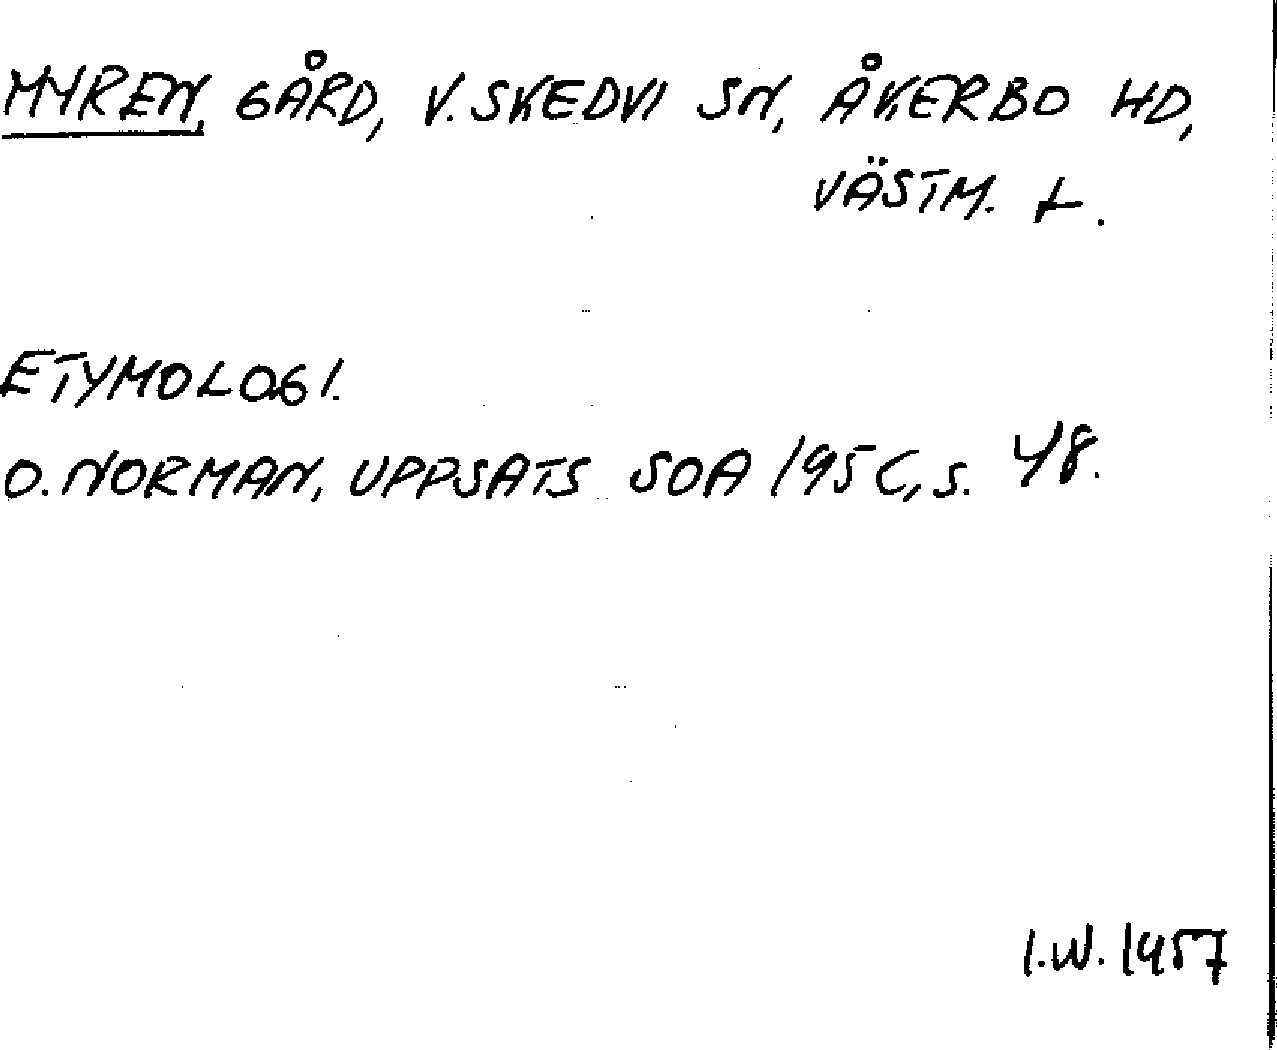 MYREN, GÅRD, V. SKEDVI SN, ÅKERBO HD,
VÄSTM. L.
ETYMOLOGI.
O. NORMAN, UPPSATS SOA 195C, s. 48.
I.W. 1957